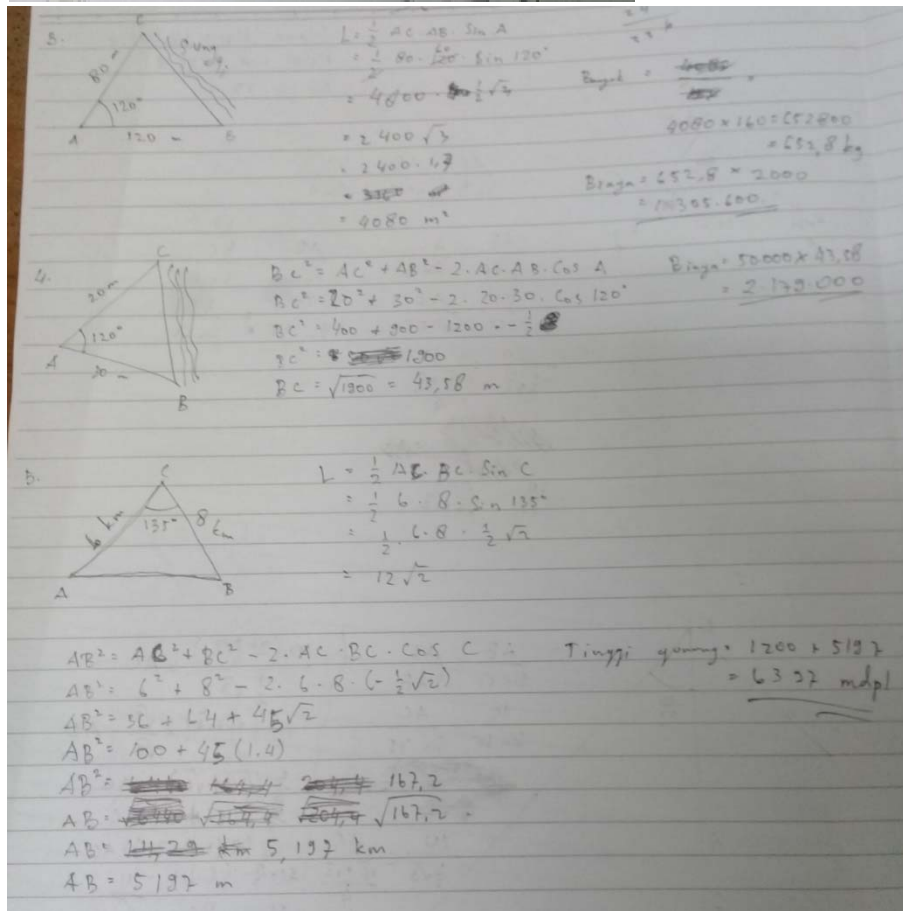 3.
C
80 m
120°
A
120 m
B
L = 1/2 AC. AB. Sin A
= 1/2 80. 120. Sin 120°
= 4800 . 1/2 √3
= 2400 √3
= 2400 . 1,7
= 4080 m²
4080 × 160 = 652800
= 652,8 kg
Biaya = 652,8 × 2000
4.
C
20 m
120°
A
B
BC² = AC² + AB² - 2. AC. AB. Cos A
BC² = 20² + 30² - 2. 20. 30. Cos 120°
BC² = 400 + 900 - 1200 . - 1/2
BC² = 1900
BC = √1900 = 43,58 m
Biaya = 50000 × 43,58
= 2.179.000
5.
C
6 km
135°
8 km
A
B
L = 1/2 AC. BC. Sin C
= 1/2 6 . 8 . Sin 135°
= 1/2 . 6 . 8 . 1/2 √2
= 12 √2
AB² = AC² + BC² - 2. AC. BC. Cos C
AB² = 6² + 8² - 2. 6. 8. (-1/2 √2)
AB² = 36 + 64 + 45√2
AB² = 100 + 45 (1.4)
AB² = 167,2
AB = √167,2
AB = 5,197 km
AB = 5197 m
Tinggi gunung = 1200 + 5197
= 6397 mdpl